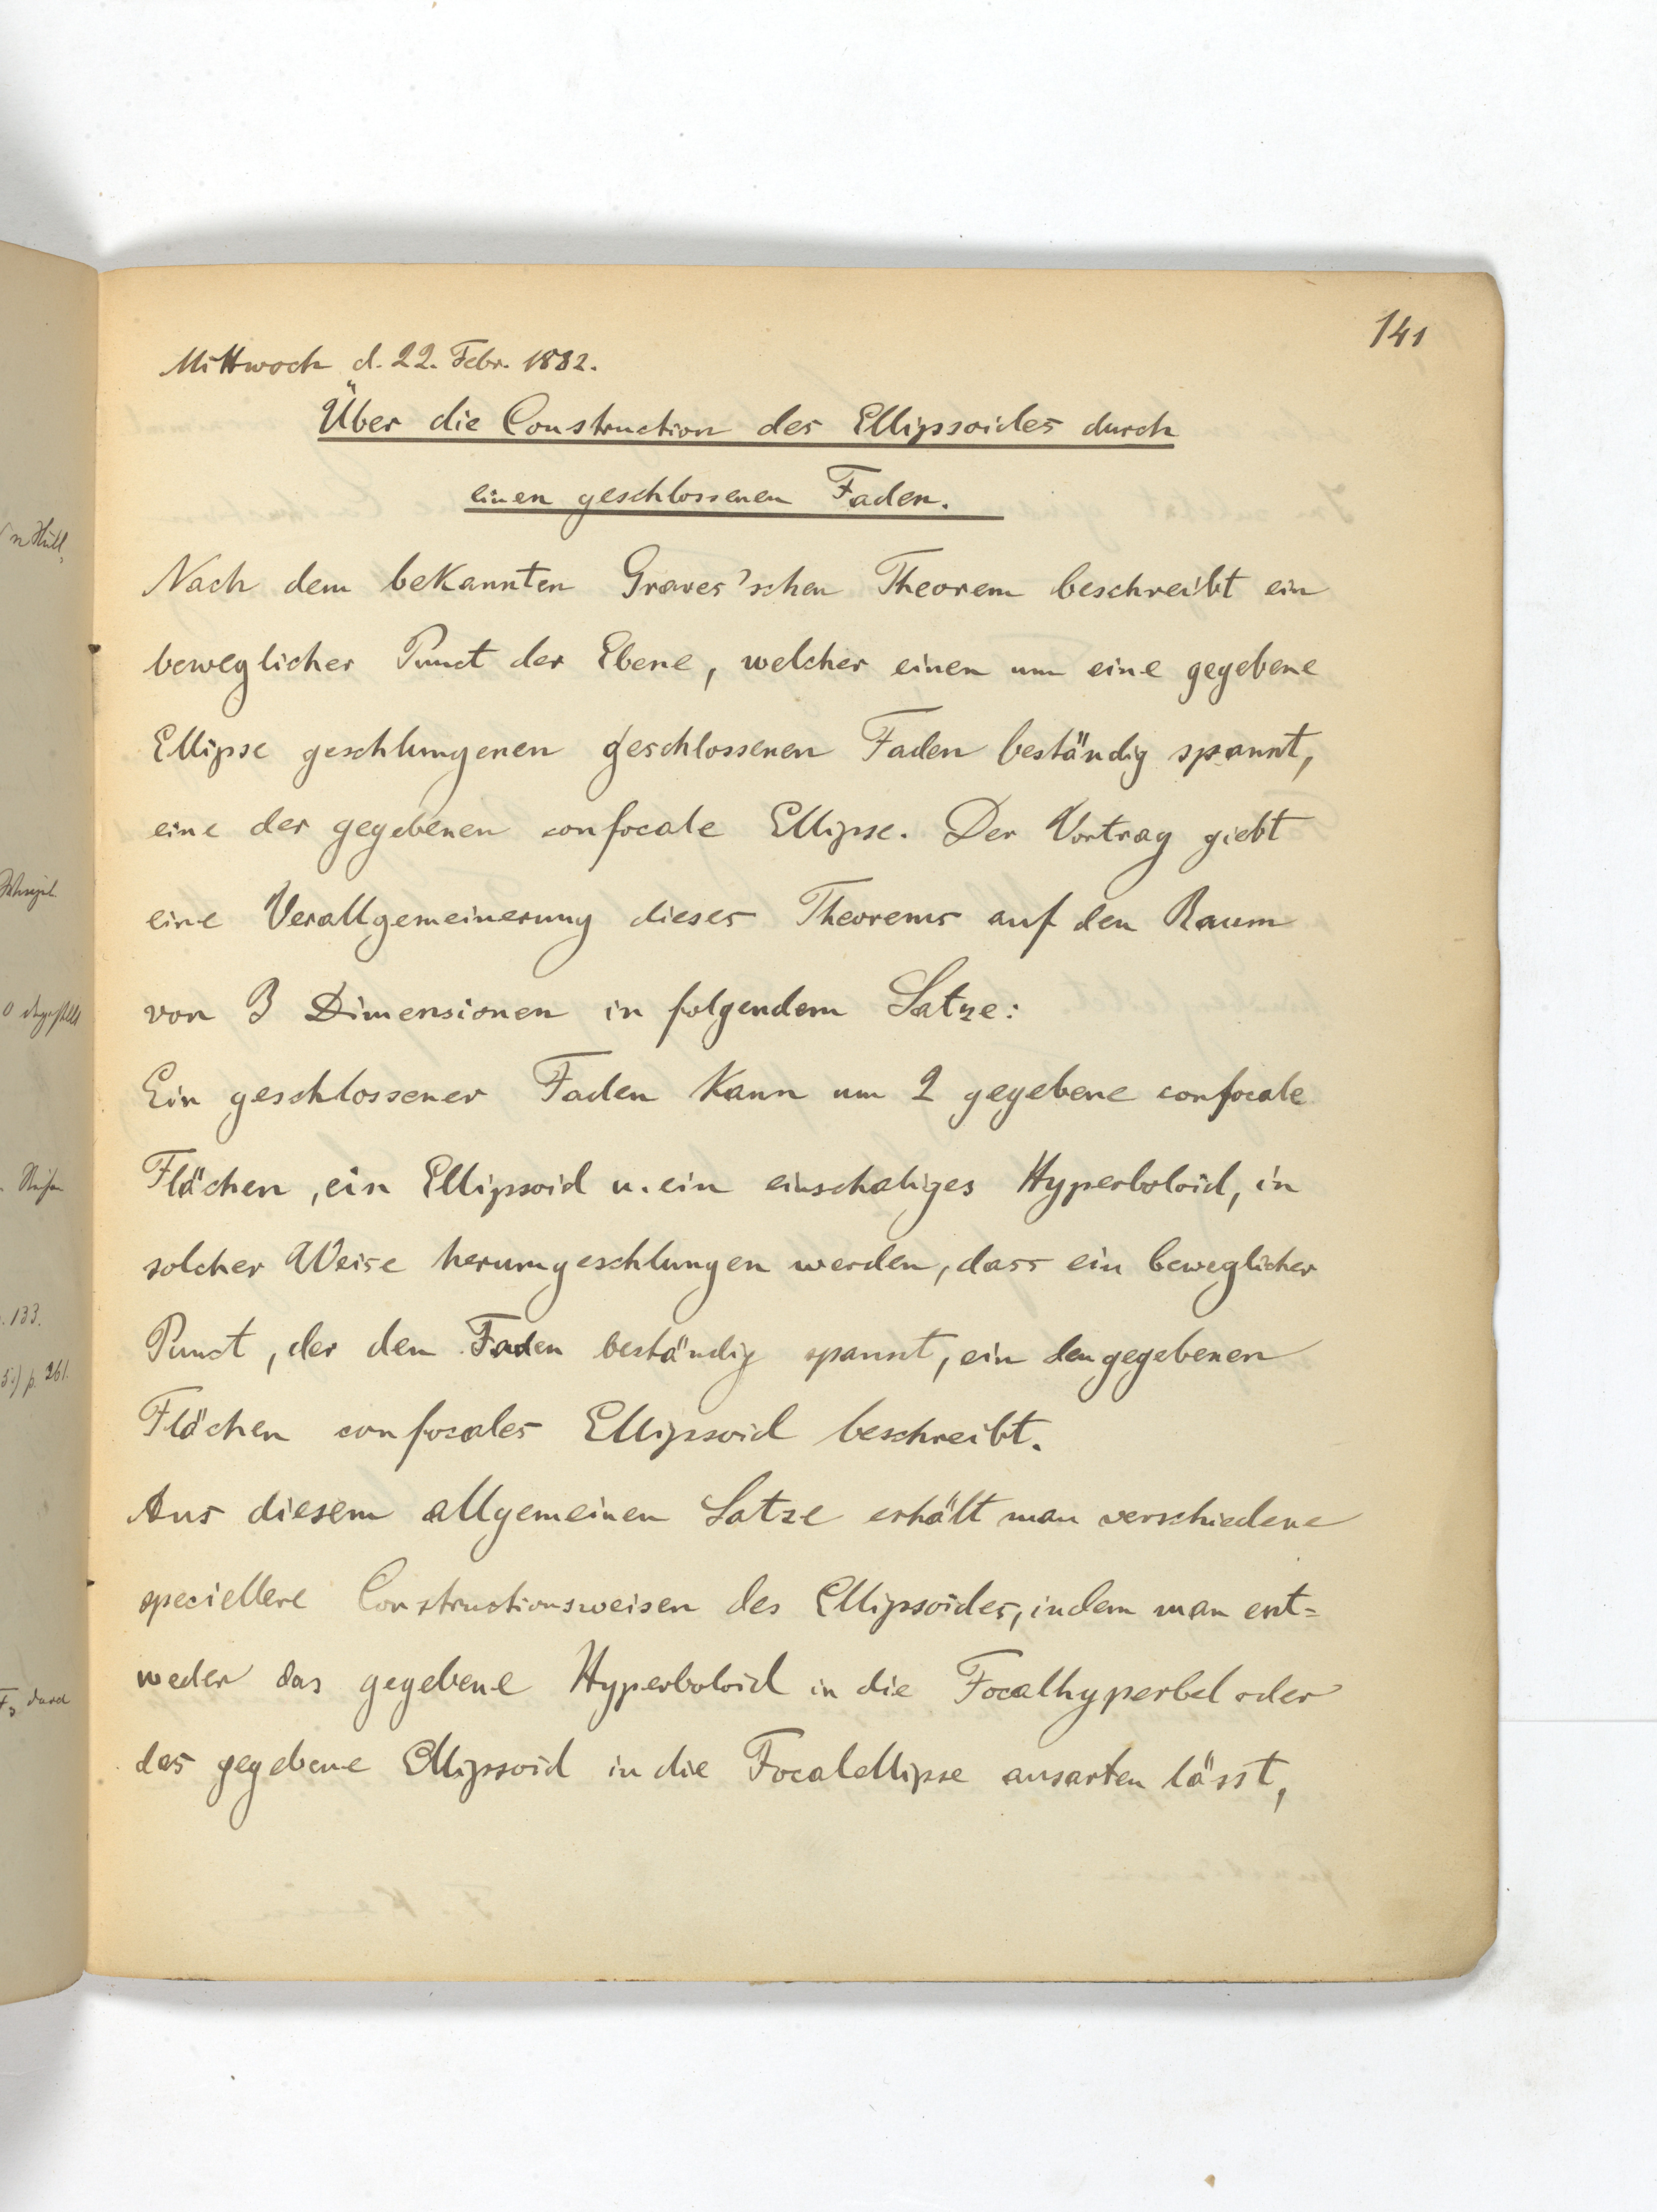 141
Mittwoch d. 22. Febr. 1882.
Über die Construction des Ellipsoides durch
einen geschlossenen Faden.
Nach dem bekannten Graves'schen Theorem beschreibt ein
beweglicher Punct der Ebene, welcher einen um eine gegebene
Ellipse geschlungenen geschlossenen Faden beständig spannt,
eine der gegebenen confocale Ellipse. Der Vortrag giebt
eine Verallgemeinerung dieses Theorems auf den Raum
von 3 Dimensionen in folgendem Satze:
Ein geschlossener Faden kann um 2 gegebene confocale
Flächen, ein Ellipsoid u. ein einschaliges Hyperboloid, in
solcher Weise herumgeschlungen werden, dass ein beweglicher
Punct, der den Faden beständig spannt, ein den gegebenen
Flächen confocales Ellipsoid beschreibt.
Aus diesem allgemeinen Satze erhält man verschiedene
speciellere Constructionsweisen des Ellipsoides, indem man ent=
weder das gegebene Hyperboloid in die Focalhyperbel oder
das gegebene Ellipsoid in die Focalellipse ausarten lässt,
. 133.
p. 261.